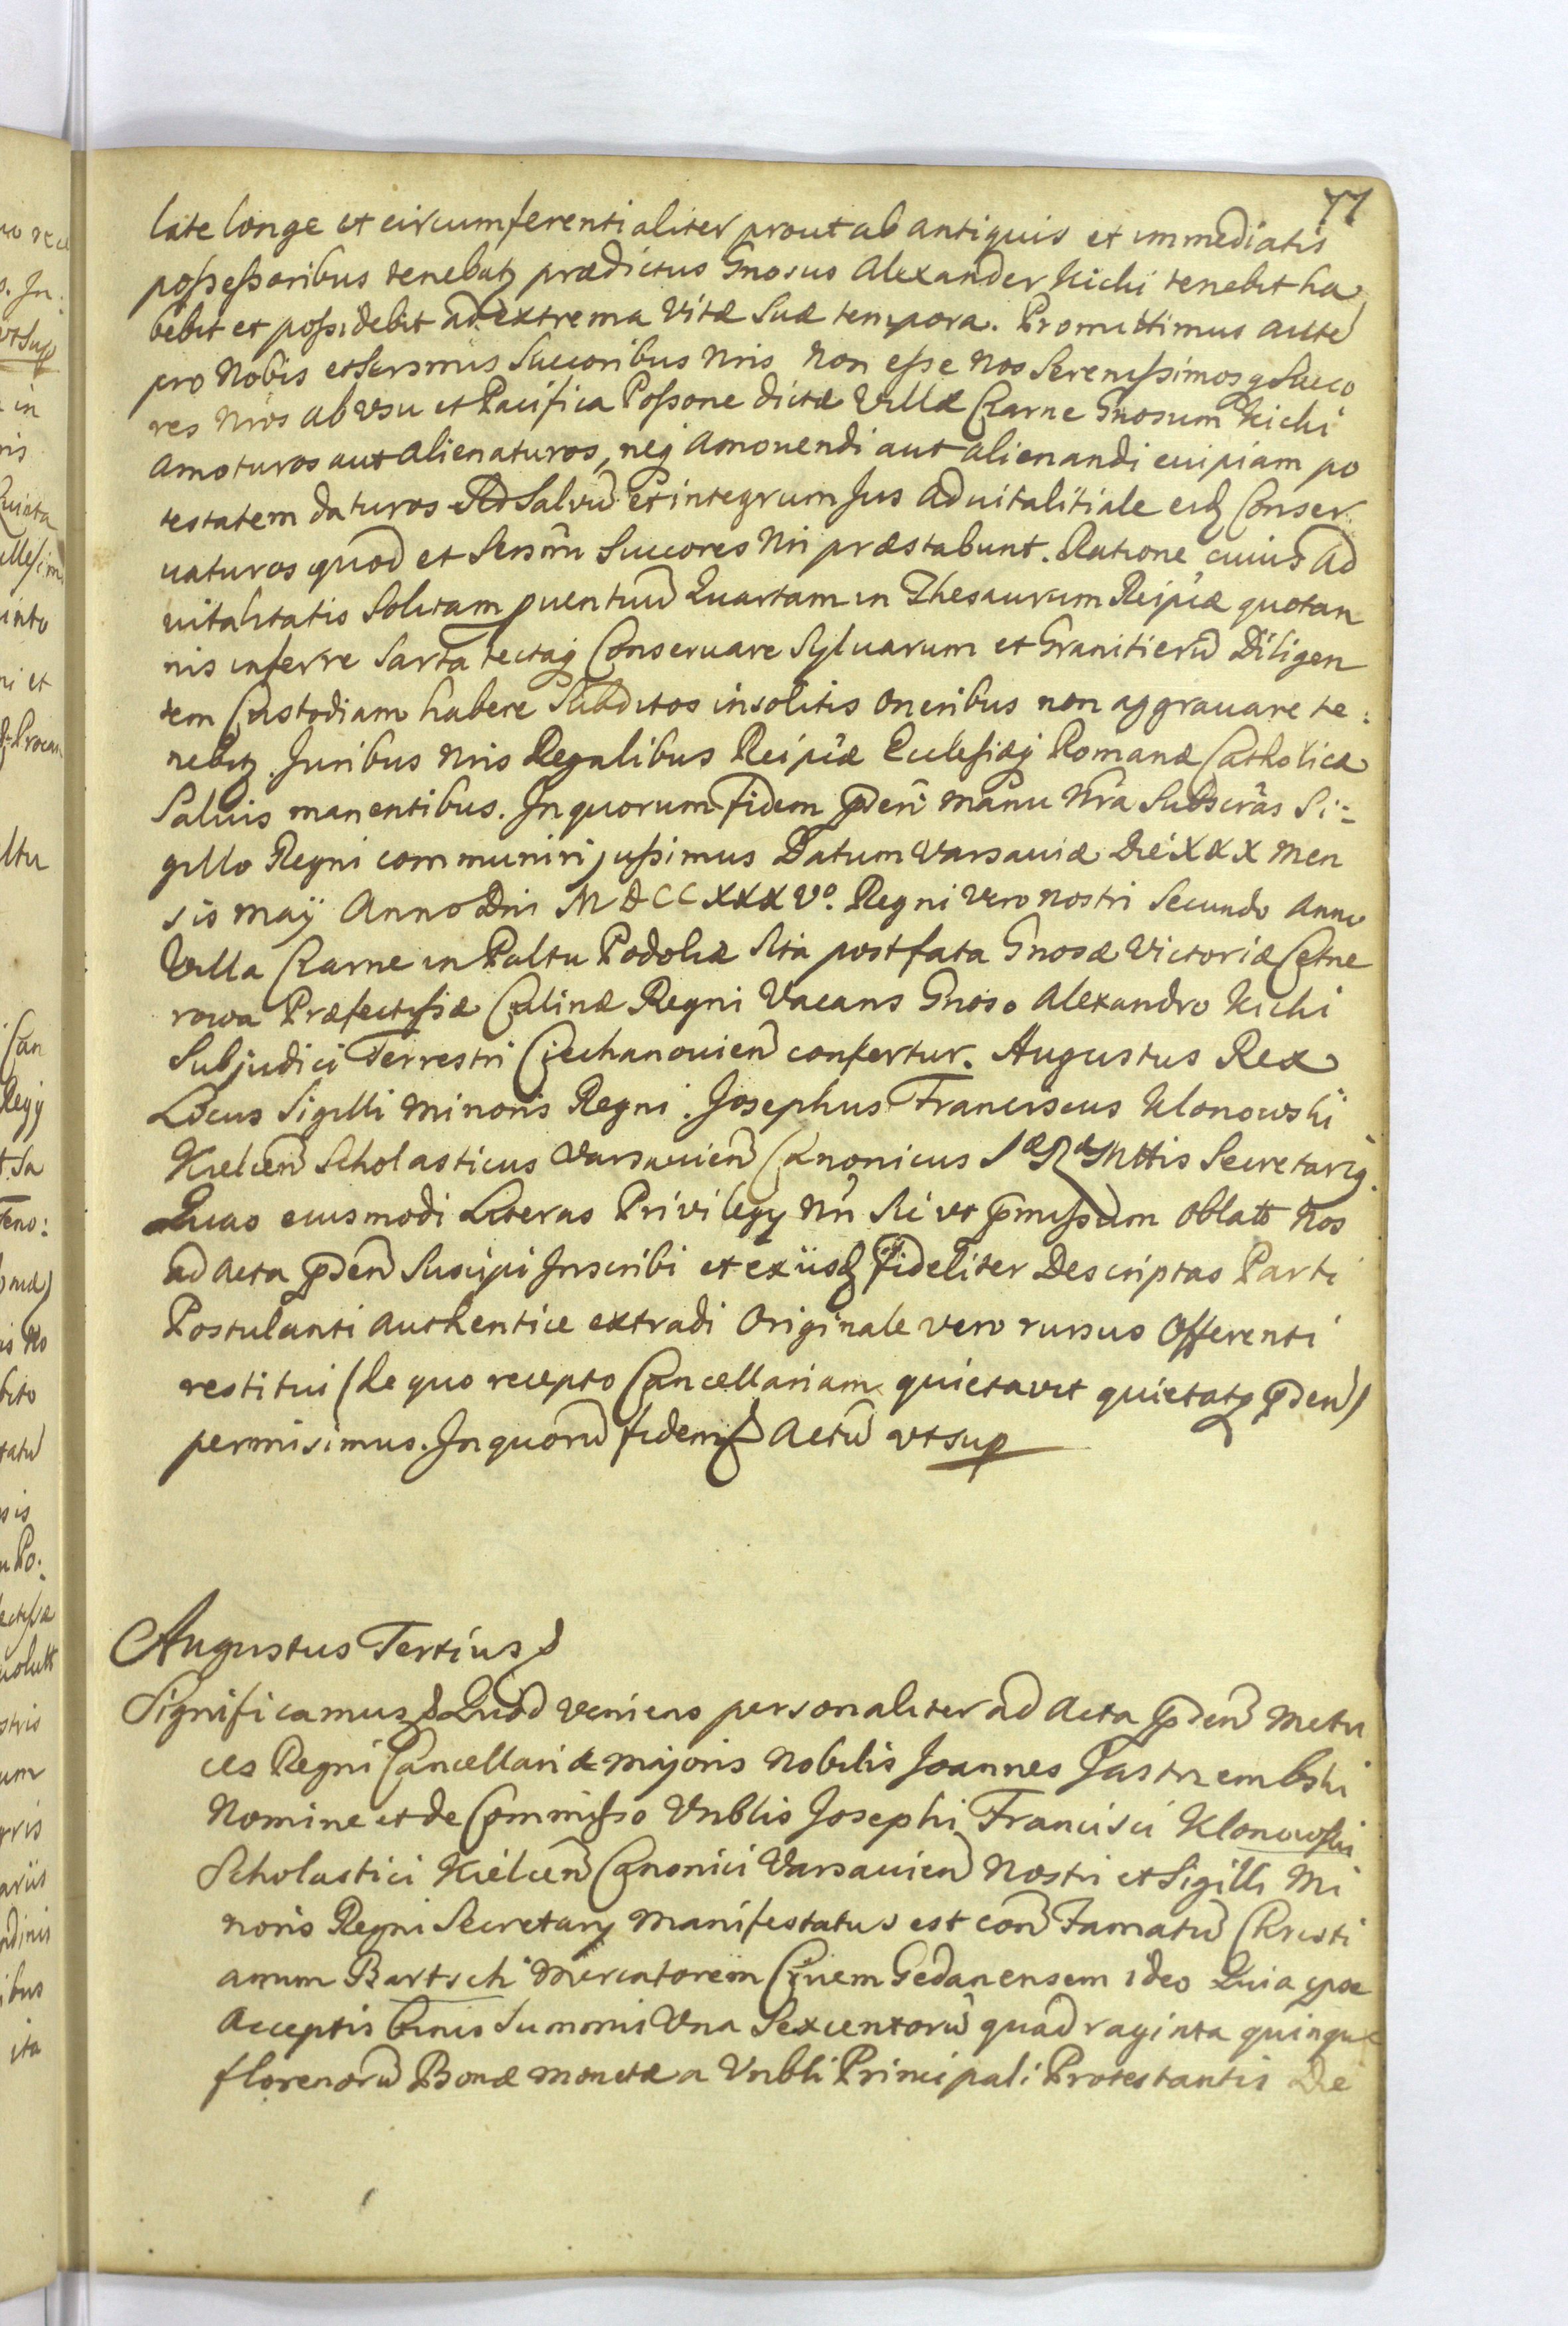 77
late longe et circumferentialiter prout ab antiquis et immediatis
possessoribus tenebatꝫ prædictus Gnosus Alexander Kicki tenebit ha
bebit et possidebit ad extrema vitæ suæ tempora. Promittimus aute
pro Nobis et Sersmis Succoribus Nris Non esse Nos Serenissimosq Succo
res Nros ab usu et Pacifica Possone dictæ Villæ Czarne Gnosum Kicki
amoturos aut alienaturos, neq amovendi aut alienandi cuipiam po
testatem daturos sed salvū et integrum Jus advitalitiale eidꝫ Conser
vaturos quod et Sersmi Succores Nri præstabunt. Ratione cuius ad
vitalitatis Solitam pventuū Quartam in Thesaurum Reipcæ quotan
nis inferre Sarta tectaq Conservare Sylvarum et Granitierū Diligen
tem Custodiam habere Subditos insolitis oneribus non aggravare te:
nebitꝫ. Juribus Nris Regalibus Reipcæ Ecclesiæq Romanæ Catholicæ
Salvis manentibus. In quorum fidem pnden manu Nra Subscras Si:
gillo Regni communiri jussimus Datum Varsaviæ Die XXX Men
sis Maÿ Anno Dni MDCCXXXVo. Regni vero nostri Secundo Anno
Villa Czarne in Paltu Podoliæ Sita post fata Gnosæ Victoriæ Cetne
rowa Præfectissæ Clinæ Regni Vacans Gnoso Alexandro Kicki
Subjudici Terrestri Ciechanovien confertur. Augustus Rex
Locus Sigilli minoris Regni. Josephus Franciscus Klonowski
Kielcen Scholasticus Varsavien Canonicus SæRæMttis Secretarig.
Quas eiusmodi Literas Privilegy Nri Sic ut pmissum oblatt Nos
ad Acta pnden Suscipi Inscribi et ex iisdꝫ fideliter Descriptas Parti
Postulanti authentice extradi Originale vero rursus Offerenti
restitui (de quo recepto Cancellariam quietavit quietatqꝫ pnden)
permisimus. In quorū fidem & Actū ut sup
Augustus Tertius &
Significamus & Quod veniens personaliter ad Acta pnden Metri
ces Regni Cancellariæ majoris Nobilis Joannes Jastrzembski
Nomine et de Commisso Vnblis Josephi Francisci Klonowski
Scholastici Kielcen Canonici Varsavien Nostri et Sigilli Mi
noris Regni Secretary manifestatus est con Famatū Christi
anum Bartsch Mercatorem Civem Gedanensem ideo Quia ipse
acceptis binis Summis Una Sexcentorū quadraginta quinque
florenorū Bonæ monetæ a Vnbli Principali Protestantis Die